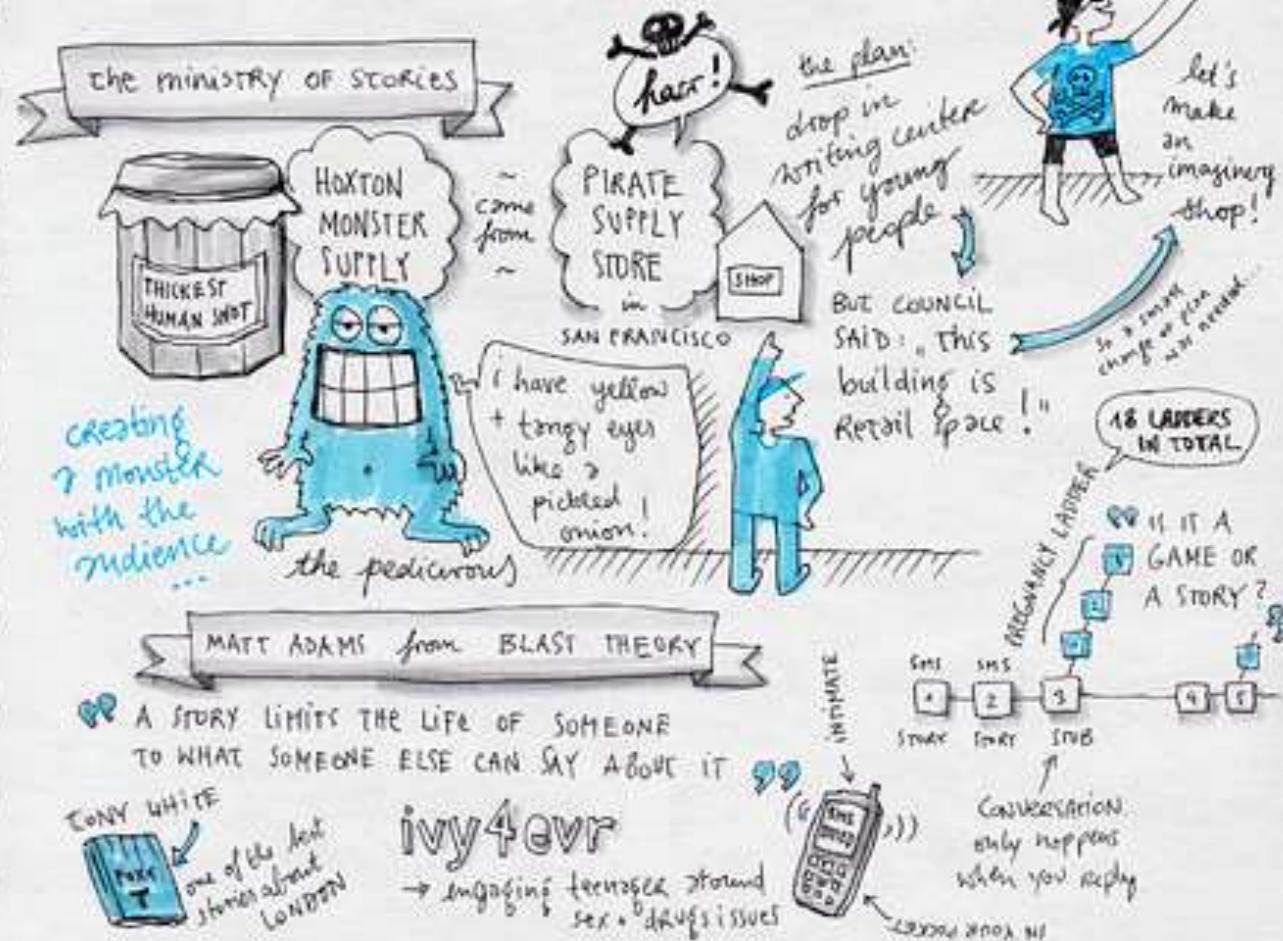 the ministry of stories
THICKEST
HUMAN SNOT
HOXTON
MONSTER
SUPPLY
~
came
from
~
harr!
PIRATE
SUPPLY
STORE
in
SAN FRANCISCO
SHOP
the plan:
drop in
writing center
for young
people
BUT COUNCIL
SAID: „This
building is
Retail space!"
so a small
change of plan
was needed...
let's
make
an
imaginery
shop!
creating
a monster
with the
audience
...
i have yellow
+ tangy eyes
like a
pickled
onion!
the pedicurous
MATT ADAMS from BLAST THEORY
A STORY LIMITS THE LIFE OF SOMEONE
TO WHAT SOMEONE ELSE CAN SAY ABOUT IT
TONY WHITE
FOXY
T
one of the best
stories about
LONDON
ivy4evr
→ engaging teenager around
sex + drugs issues
INTIMATE
SMS
IN YOUR POCKET
18 LADDERS
IN TOTAL
PREGNANCY LADDER
IS IT A
GAME OR
A STORY?
SMS SMS
1 2 3 4 5
STORY STORY STUB
CONVERSATION
only happens
when you reply